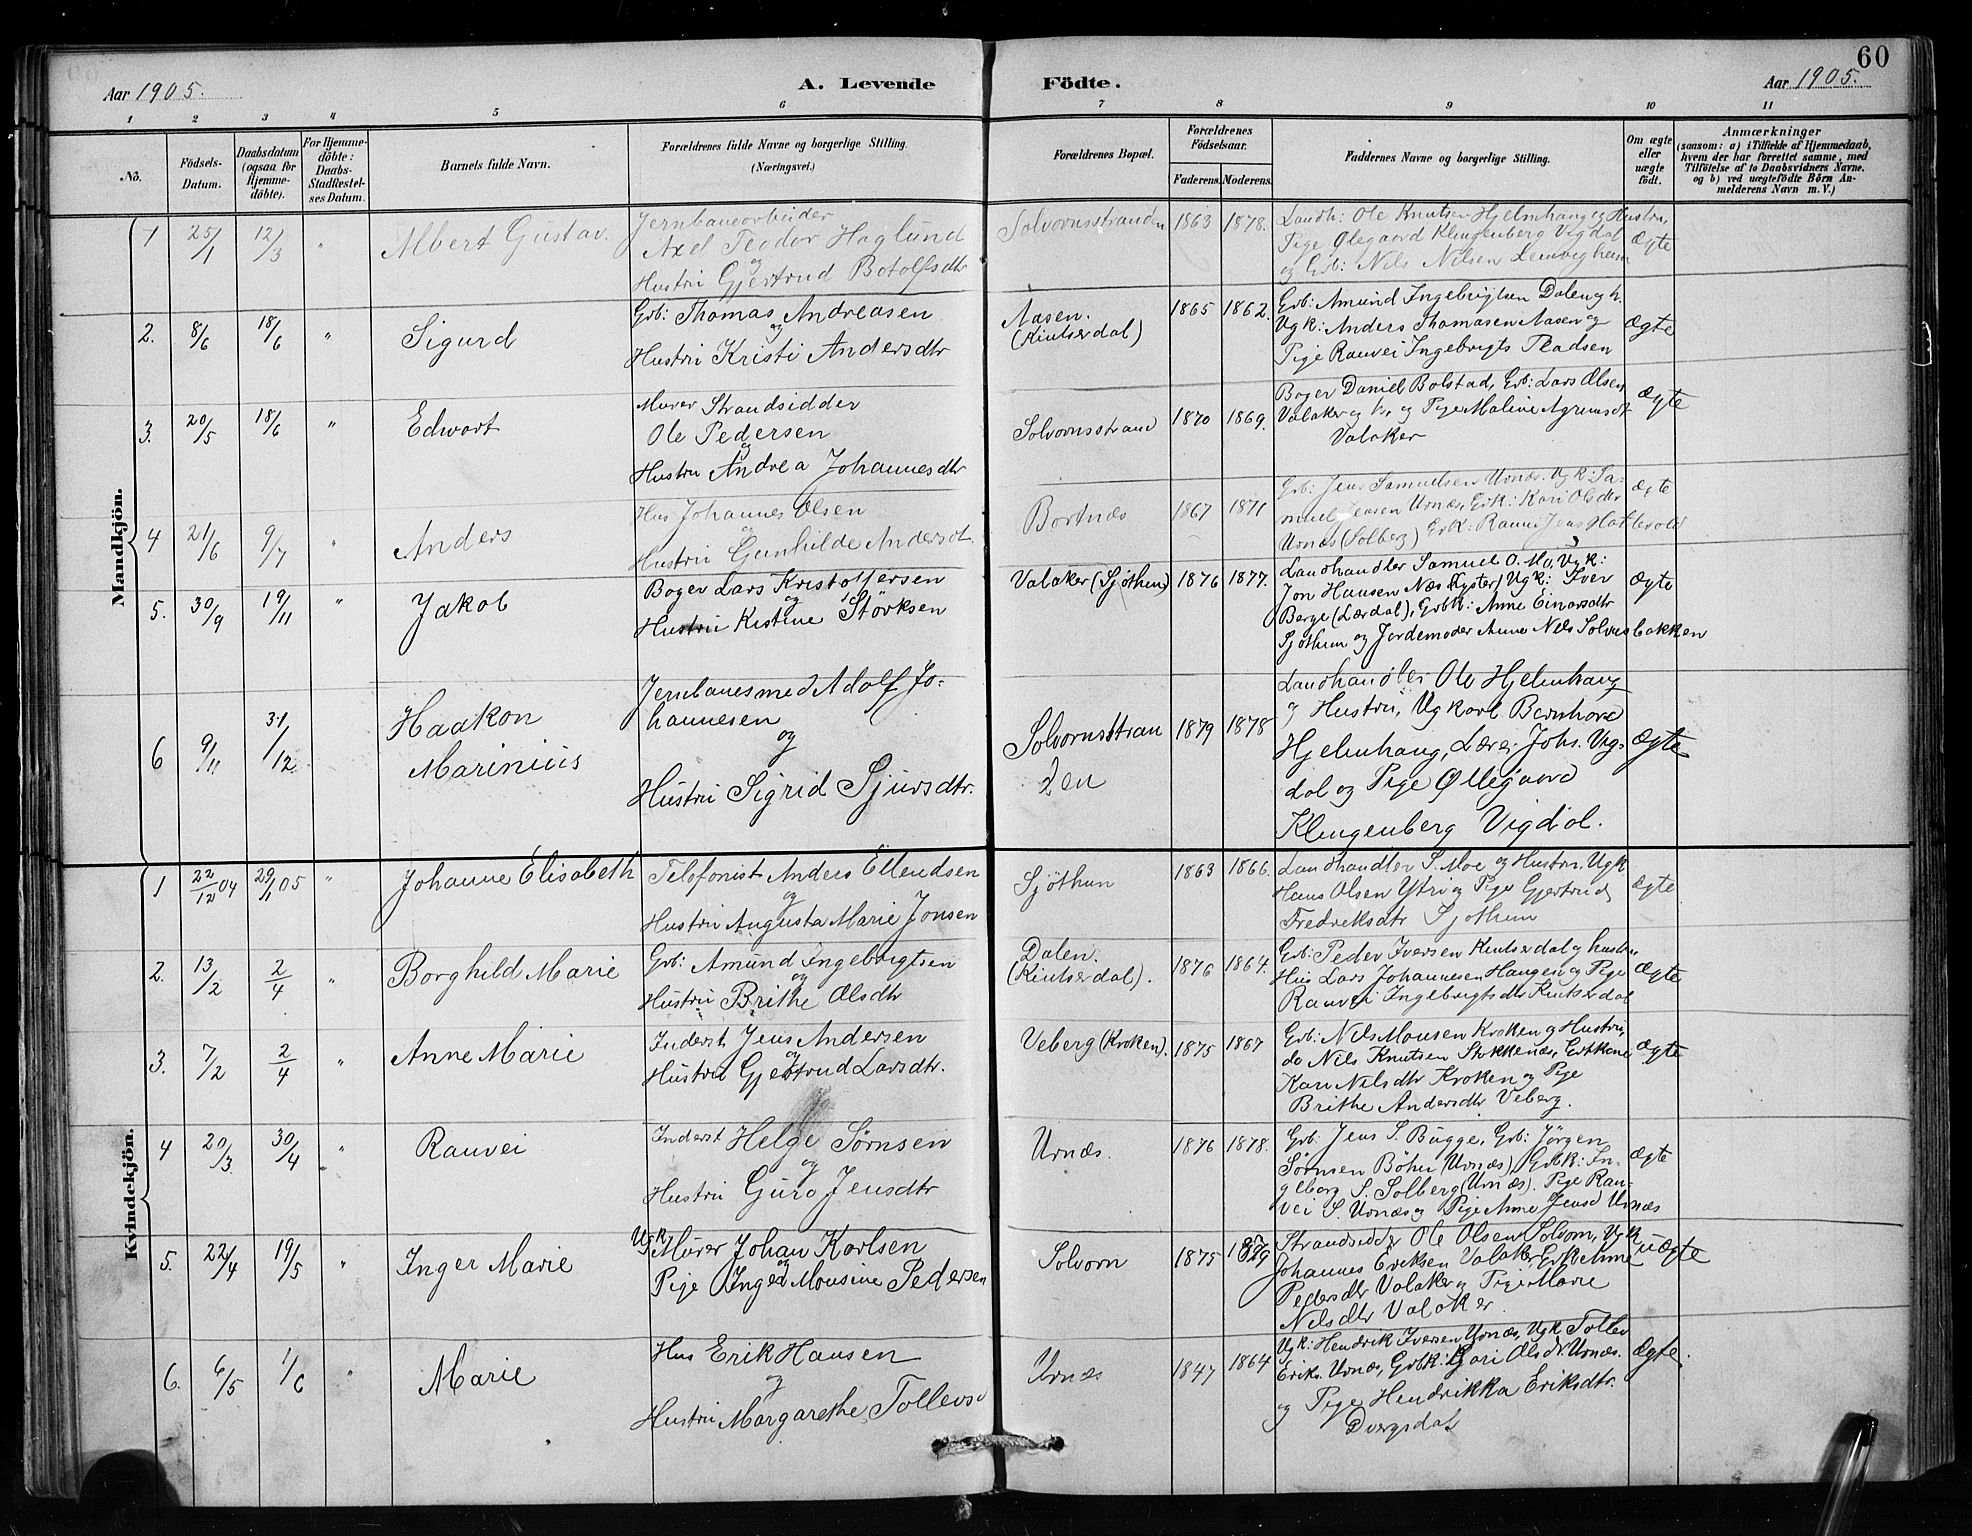 60
Aar 1905.
A. Levende Födte.
Aar 1905.
1 2 3 4 5 6 7 8 9 10 11
No.
Födsels-Datum.
Daabsdatum (ogsaa for Hjemme-döbte).
For Hjemme-döbte: Daabs-Stadfæstel-ses Datum.
Barnets fulde Navn.
Forældrenes fulde Navne og borgerlige Stilling.
(Næringsvei.)
Forældrenes Bopæl.
Forældrenes Födselsaar.
Faderens. Moderens.
Faddernes Navne og borgerlige Stilling.
Om ægte eller uægte födt.
Anmærkninger
(saasom: a) i Tilfælde af Hjemmedaab,
hvem der har forrettet samme, med
Tilföielse af to Daabsvidners Navne,
og b) ved uægtefödte Börn An-
melderens Navn m. V.)
Mandkjön.
1 25/1 12/3 " Albert Gustav.
Jernbanearbeider
Axel Teodor Haglund
og
Hustru Gjertrud Botolfsdtr
Solvornsstranden 1863 1878.
Landh: Ole Knutsen Hjelmhaug og Hustru,
Pige Ølegaard Klingenberg Vigdal
og Grb: Nils Nilsen
ægte
2. 8/6 18/6 " Sigurd
Grb: Thomas Andreasen
og
Hustru Kristi Andersdtr
Aasen.
(Kinserdal)
1865 1862.
Grb: Amund Ingebrigtsen Dalen og h.
Ugk: Anders Thomasen Aasen og
Pige Rauvei Ingebrigts
ægte
3. 20/5 18/6 " Edvart
Murer Strandsidder
Ole Pedersen
og
Hustru Andrea Johannesdtr
Solvornsstrand 1870 1869.
Bager Daniel Bolstad, Grb: Lars Olsen
Valaker og h. og Pige Maline
Valaker
ægte
4 21/6 9/7 " Anders
Hus Johannes Olsen
Hustru Gunhilde Andersdt.
Bortnæs 1867 1871
Grb: Jens Samuelsen Urnæs. Ugk: Sa-
muel Jensen Urnæs, Grk: Kari Olsdtr
Urnæs (Solberg)
ægte
5. 30/9 19/11 " Jakob
Bager Lars Kristoffersen
og
Hustru Kistine Störksen
Valaker (Sjøthun) 1876 1877.
Landhandler Samuel O. Mo, Ugk:
Jon Hansen Næs (Lyster) Ugk: Iver
Berge (Lærdal), Grbk: Anne Einarsdtr
Sjøthun og Jordemoder Anna Nils Solvesbakken
ægte
6 9/11 31/12 Haakon
Marinius
Jernbanesmed Adolf Jo-
hannesen
og
Hustru Sigrid Sjursdtr.
Solvornsstran
den
1879 1878
Landhandler Ole Hjelmhaug
og Hustru, Ugkarl Bernhard
Hjelmhaug, Lærer Johs. Vig-
dal og Pige Øllegaard
Klingenberg Vigdal.
ægte
Kvindekjön.
1 22/12 04 29/1 05 " Johanne Elisabeth
Telefonist Anders Ellendsen
og
Hustru Augusta Marie Jonsen
Sjøthun 1863 1866.
Landhandler S. Moe og Hustru. Ugk
Hans Olsen Ytri og Pige Gjertrud
Fredriksdtr Sjøthun
ægte
2. 13/2 2/4 " Borghild Marie
Grb: Amund Ingebrigtsen
og
Hustru Brithe Olsdtr
Dalen.
(Kinserdal).
1876 1864.
Grb: Peder Iversen Kinserdal og hustru
Hus Lars Johannesen Haugen og Pige
Rauvei Ingebrigtsdtr Kinserdal
ægte
3. 7/2 2/4 " Anne Marie
Inderst Jens Andersen
og
Hustru Gjertrud Larsdtr.
Veberg (Kroken). 1875 1867
Grb: Nils Monsen Kroken og Hustru,
do Nils Knutsen Stokkenæs, Grbkone
Kari Nilsdtr Kroken og Pige
Brithe Andersdtr Veberg.
ægte
4 20/3 30/4 " Rauvei
Inderst Helge Sørnsen
og
Hustru Guro Jensdtr
Urnæs. 1876 1878.
Grb: Jens S. Bugge, Grb: Jørgen
Sørnsen Bøhn (Urnæs), Grbk: In-
geborg S. Solberg (Urnæs). Pige Rau-
vei S. Urnæs og Pige Anne Jensd Urnæs
ægte
5. 22/4 19/5 " Inger Marie
Ugk Murer Johan Karlsen
og
Pige Inger Monsine Pedersen
Solvorn 1875 1879
Strandsidder Ole Olsen Solvorn, Ugk
Johannes Eriksen Valaker, Grbk Anne
Pedersdtr Valaker og Pige Marie
Nilsdtr Valaker.
uægte
6. 6/5 1/6 " Marie
Hus Erik Hansen
og
Hustru Margarethe Tollevsd
Urnæs 1847 1864
Ugk: Hendrik Iversen Urnæs, Ugk Tollev
Eriks. Urnæs, Grbk: Kari Olsdtr Urnæs.
og Pige Hendrikka Eriksdtr.
Dvergsdal
ægte.